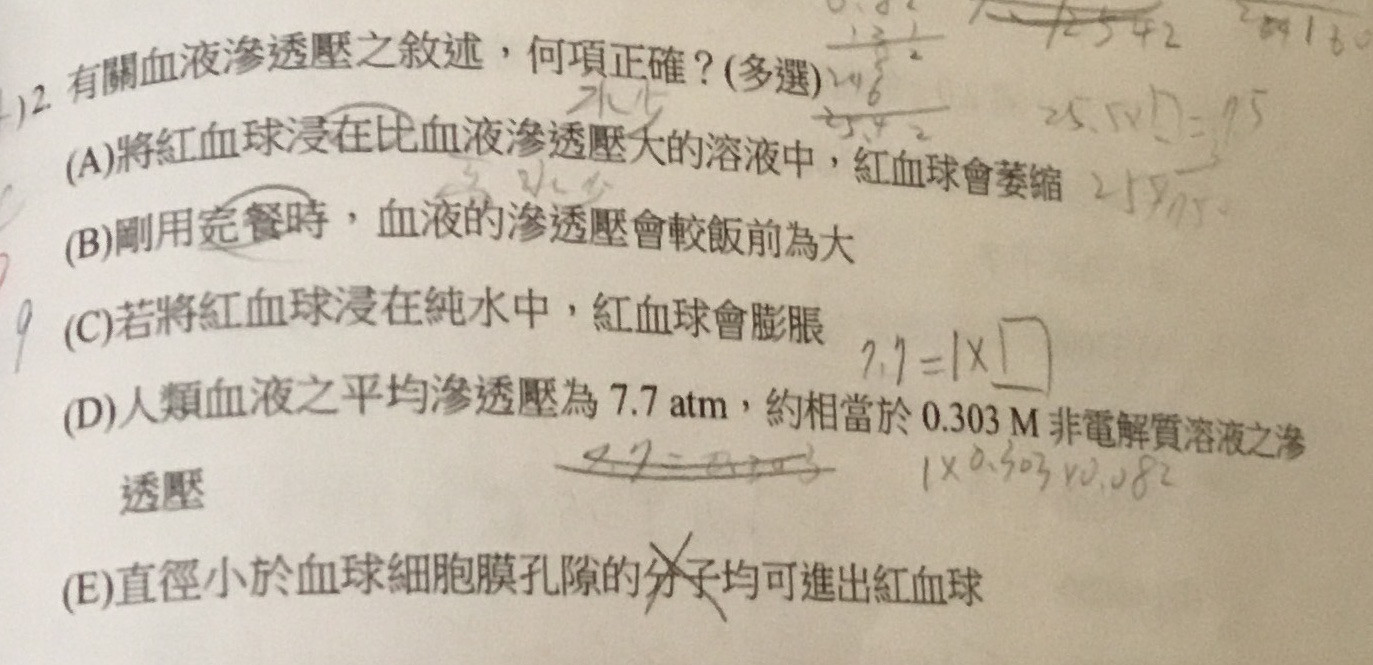 2. 有關血液滲透壓之敘述，何項正確？(多選)
(A)將紅血球浸在比血液滲透壓大的溶液中，紅血球會萎縮
(B)剛用完餐時，血液的滲透壓會較飯前為大
(C)若將紅血球浸在純水中，紅血球會膨脹
9
7.7=1×□
(D)人類血液之平均滲透壓為 7.7 atm，約相當於 0.303 M 非電解質溶液之滲
1×0.303×0.082
透壓
(E)直徑小於血球細胞膜孔隙的分子均可進出紅血球